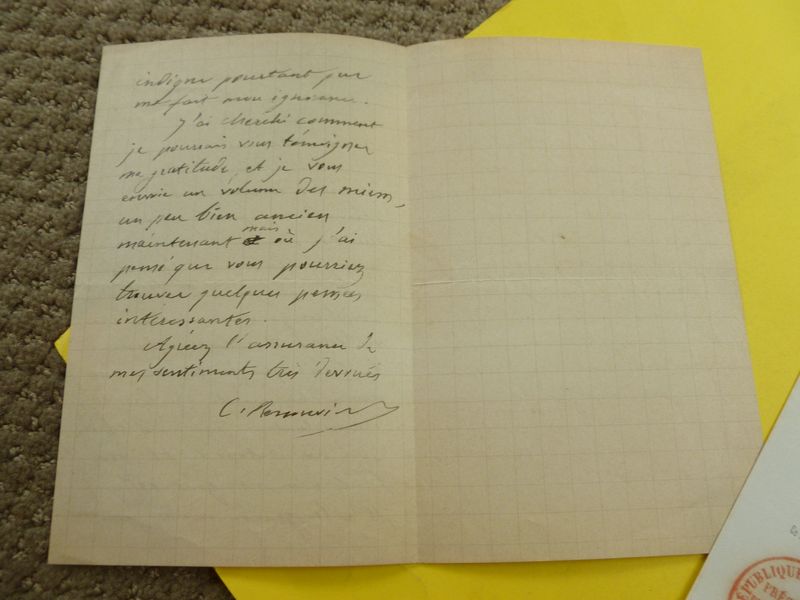 indigne pourtant par
me fait mon ignorance.
J'ai cherché comment
je pourrais vous témoigner
ma gratitude, et je vous
envoie un volume des miens,
un peu bien ancien
maintenant mais où j'ai
pensé que vous pourriez
trouver quelques pensées
intéressantes.
Agréez l'assurance de
mes sentiments très dévoués
C. Renouvier
RÉPUBLIQUE